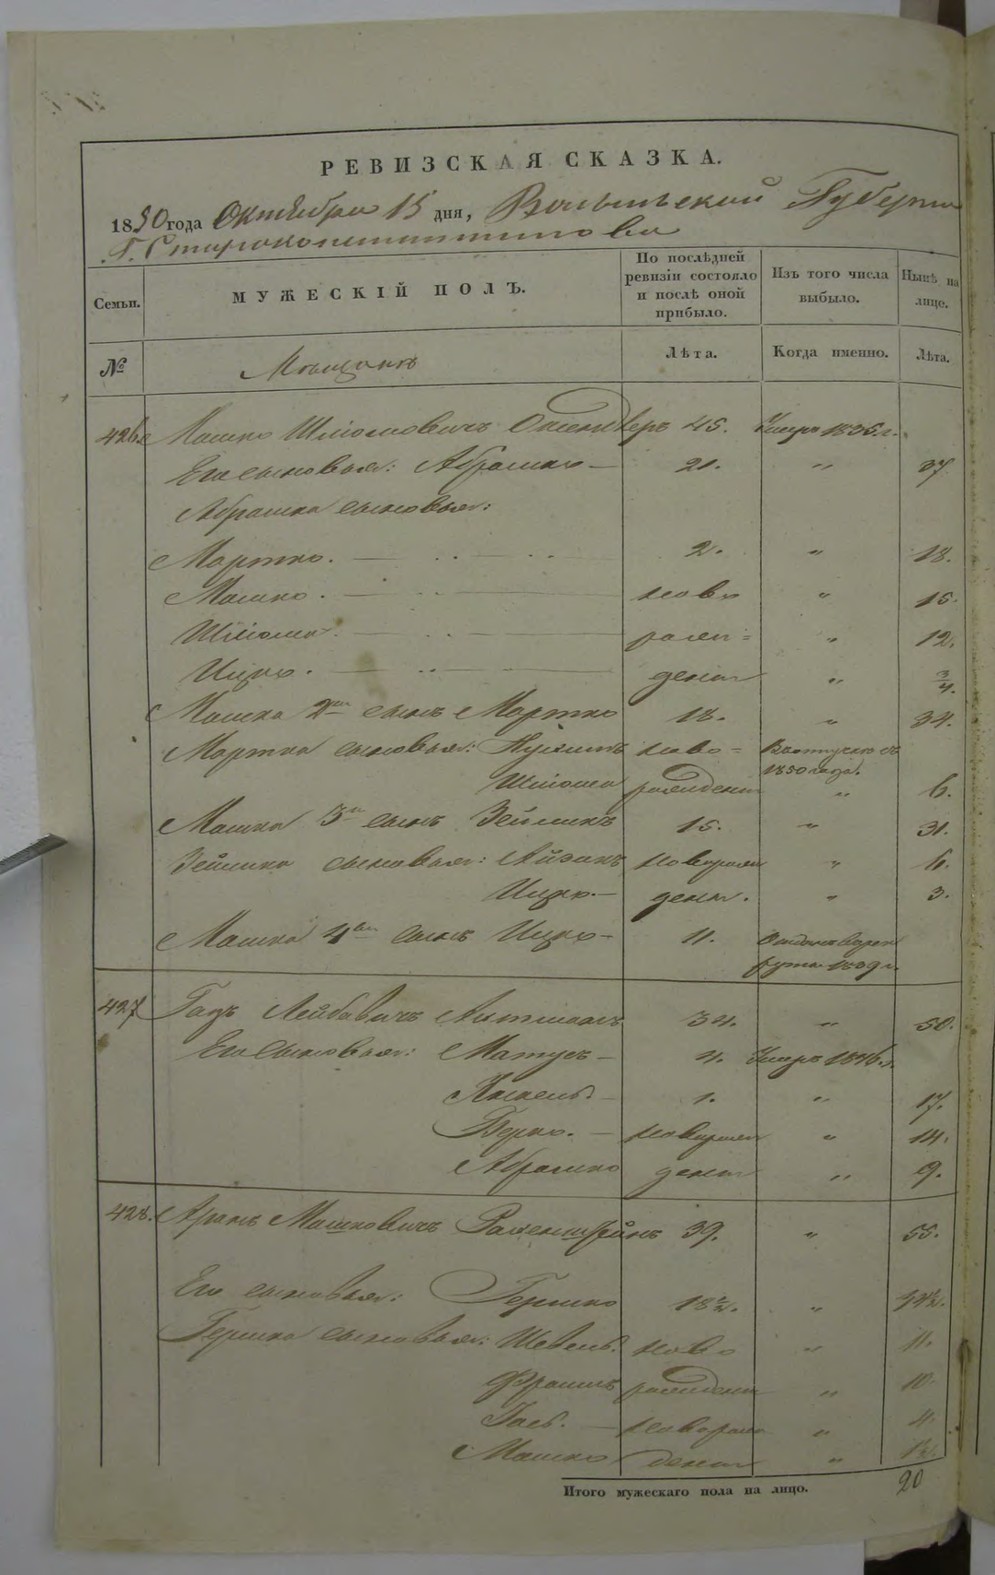 РЕВИЗСКАЯ СКАЗКА.
1850 года Октября 15 дня, Волынской Губернии
Г. Староконстантинова
Семьи.
МУЖЕСКІЙ ПОЛЪ.
По послѣдней ревизіи состояло и послѣ оной прибыло.
Изъ того числа выбыло.
Нынѣ на лице.
№
Мѣщанъ
Лѣта.
Когда именно.
Лѣта.
426. Мошко Шліомовичъ 45. Умеръ 1835 г.
Его сыновья: Абрашко 21. " 37
Абрашка сыновья:
Мортко. 2. " 18.
Мошко. ново " 15.
Шліома. рожд= " 12.
Ицко. денъ " 3/4.
Мошка 2й сынъ Мортко 18. " 34.
Мортка сыновья: ново=
1850 года.
Шліома рожденъ " 6.
Мошка 3й сынъ Зейликъ 15. " 31.
Зейлика сыновья: Айзикъ новорож " 6.
Ицко денъ. " 3.
Мошка 4й сынъ Ицко 11.
1839 г.
427 Лейбовичъ 34. " 50.
Его сыновья: Матусъ 4. Умеръ 1846 г.
1. " 17.
Берко. новорож " 14.
Абрашко денъ " 9.
428. Аронъ Мошковичъ 39. " 55.
Его сыновья: Гершко 18½. " 34½.
Гершка сыновья: ново " 11.
Фроимъ рожденъ " 10.
новорож " 4.
Мошко денъ " 1½.
Итого мужескаго пола на лицо. 20